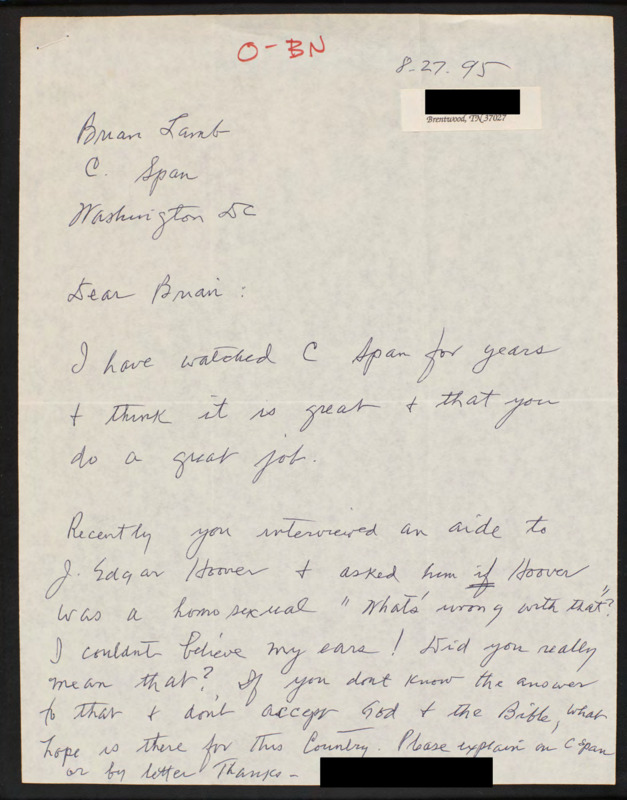 O-BN
8-27.95
Brentwood, TN 37027
Brian Lamb
C. Span
Washington DC
Dear Brian :
I have watched C Span for years
+ think it is great + that you
do a great job.
Recently you interviewed an aide to
J. Edgar Hoover + asked him if Hoover
was a homosexual "What's wrong with that"?
I couldnt believe my ears! Did you really
mean that? If you dont know the answer
to that + dont accept God + the Bible, what
hope is there for this Country. Please explain on C Span
or by letter Thanks -